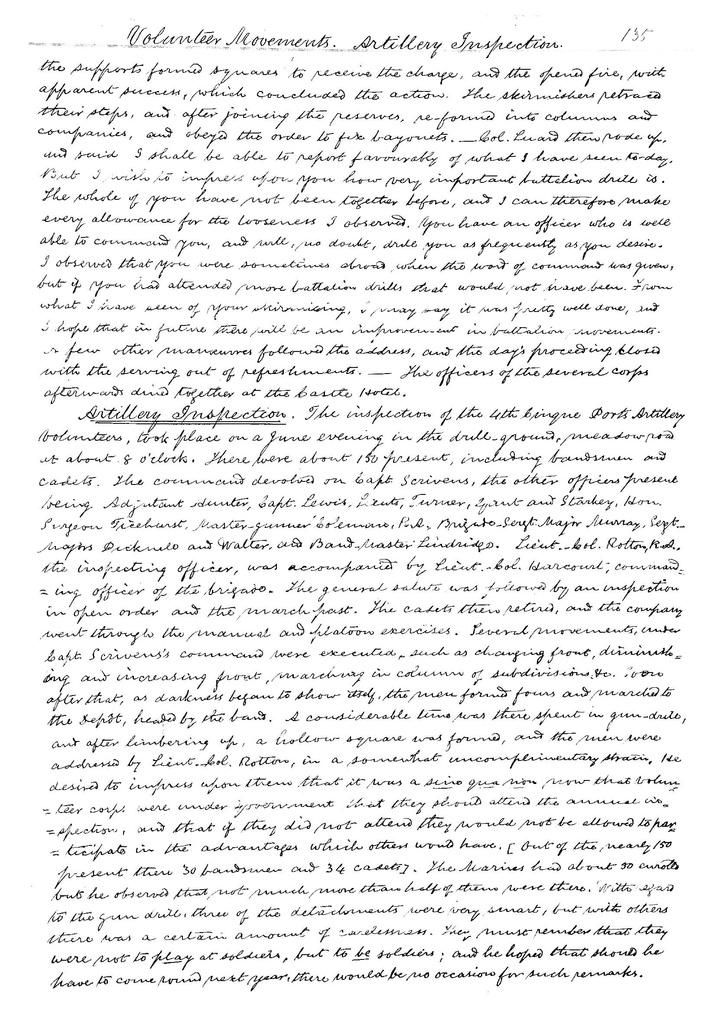 Volunteer Movements. Artillery Inspection. 135
the supports formed squares to receive the charge, and the opened fire, with
apparent success, which concluded the action. The skirmishers retraced
their steps, and after joining the reserves, re-formed into columns and
companies, and obeyed the order to fix bayonets. — Col. Luard then rode up,
and said I shall be able to report favourably of what I have seen to-day.
But I wish to impress upon you how very important battalion drill is.
The whole of you have not been together before, and I can therefore make
every allowance for the looseness I observed. You have an officer who is well
able to command you, and will, no doubt, drill you as frequently as you desire.
I observed that you were sometimes abroad, when the word of command was given,
but if you had attended more battalion drills that would not have been. From
what I have seen of your skirmishing, I may say it was pretty well done, and
I hope that in future there will be an improvement in battalion movements.
A few other maneuvres followed the address, and the day's proceeding closed
with the serving out of refreshments. — The officers of the several corps
afterwards dined together at the Castle Hotel.
Artillery Inspection. The inspection of the 4th Cinque Ports Artillery
Volunteers, took place on a June evening in the drill-ground, meadow road
at about 8 o'clock. There were about 150 present, including bandsmen and
cadets. The command devolved on Capt Scrivens, the other officers present
being Adjutant Hunter, Capt. Lewis, Lieuts, Turner, Grant and Starkey, Hon.
Surgeon Ticehurst, Master-gunner Coleman, R.A., Brigade-Sergt-Major Murray, Sergt-
Majors Bicknell and Walter, and Band-Master Lindridge. Lieut.-Col. Rotton, R.A.,
the inspecting officer, was accompanied by Lieut.-Col. Harcourt, command=
=ing officer of the brigade. The general salute was followed by an inspection
in open order and the march past. The cadets then retired, and the company
went through the manual and platoon exercises. Several movements, under
Capt. Scrivens's command were executed, such as changing front, diminish-
ing and increasing front, marching in column of subdivisions, &c. Soon
after that, as darkness began to show itself, the men formed fours and marched to
the Depôt, headed by the band. A considerable time was there spent in gun-drill,
and after limbering up, a hollow square was formed, and the men were
addressed by Lieut.-Col. Rotton, in a somewhat uncomplimentary strain. He
desired to impress upon them that it was a sine qua non now that volun=
=teer corps were under government that they should attend the annual in=
=spection, and that if they did not attend they would not be allowed to par=
=ticipate in the advantages which others would have. [Out of the nearly 150
present there 30 bandsmen and 34 cadets]. The Marines had about 50 enrolled
but he observed that not much more than half of them were there. With regard
to the gun drill, three of the detachments were very smart, but with others
there was a certain amount of carelessness. They must remember that they
were not to play at soldiers, but to be soldiers; and he hoped that should he
have to come round next year, there would be no occasion for such remarks.